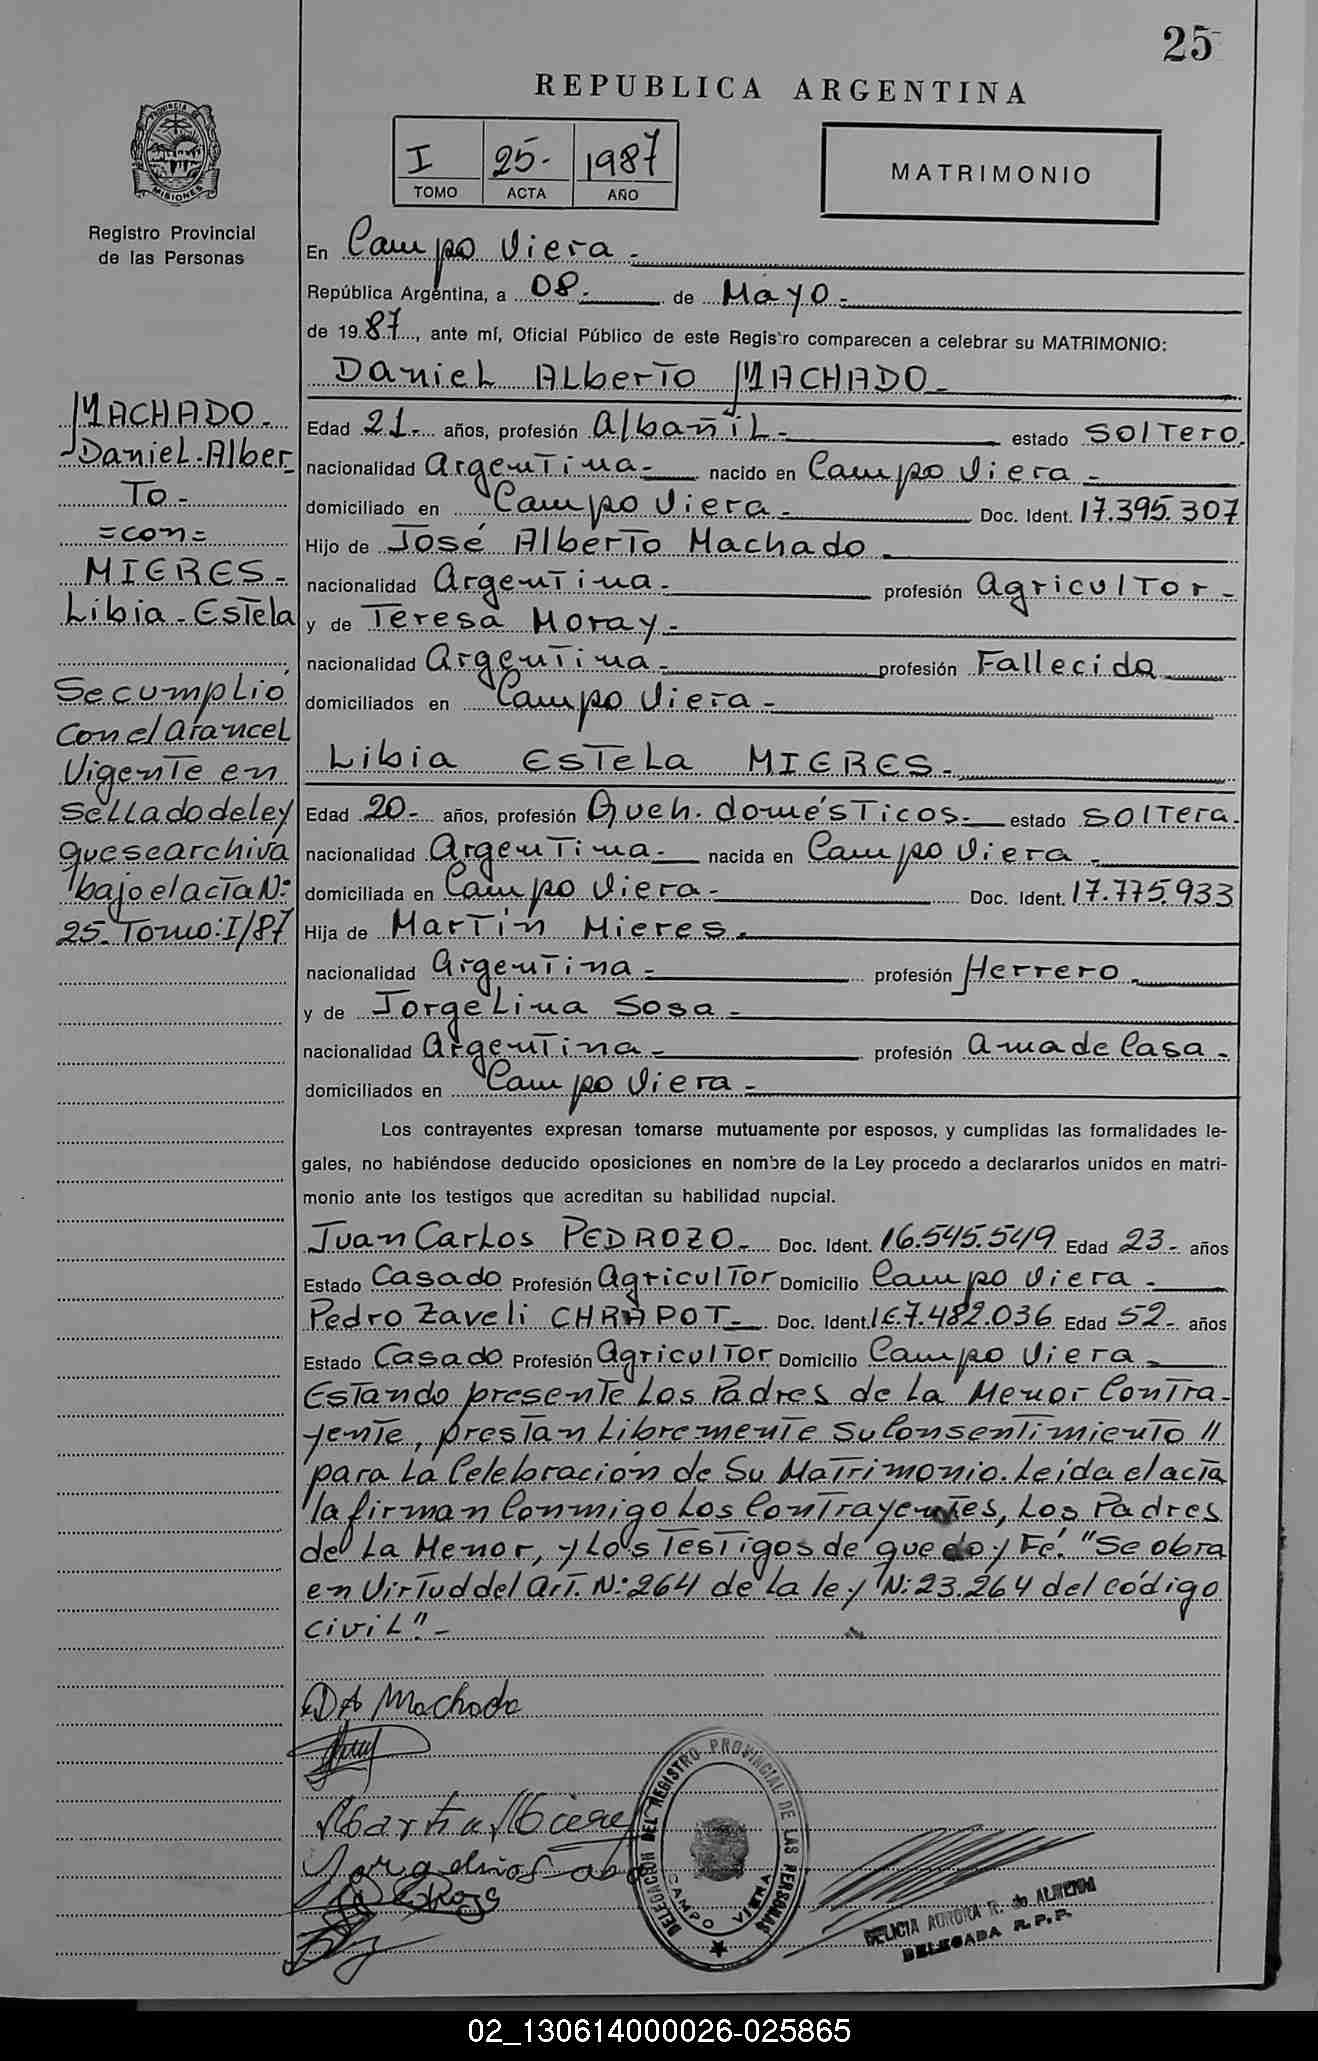 25
REPUBLICA ARGENTINA
PROVINCIA DE MISIONES
Registro Provincial
de las Personas
I 25- 1987
TOMO ACTA AÑO
MATRIMONIO
En Campo Viera -
República Argentina, a 08.- de Mayo -
de 19 87, ante mí, Oficial Público de este Registro comparecen a celebrar su MATRIMONIO:
Daniel Alberto MACHADO -
Edad 21.- años, profesión Albañil - estado Soltero.
nacionalidad Argentina - nacido en Campo Viera -
domiciliado en Campo Viera - Doc. Ident. 17.395.307
Hijo de José Alberto Machado -
nacionalidad Argentina - profesión Agricultor -
y de Teresa Moray -
nacionalidad Argentina - profesión Fallecida
domiciliados en Campo Viera -
Libia Estela MIERES -
Edad 20.- años, profesión Queh. domésticos - estado Soltera.
nacionalidad Argentina - nacida en Campo Viera -
domiciliada en Campo Viera - Doc. Ident. 17.775.933
Hija de Martín Mieres.
nacionalidad Argentina - profesión Herrero.
y de Jorgelina Sosa -
nacionalidad Argentina - profesión ama de Casa -
domiciliados en Campo Viera -
MACHADO -
-Daniel Alber
To -
=con=
MIERES -
Libia - Estela
Se cumplió
Con el Arancel
Vigente en
Sellado de ley
que se archiva
bajo el acta Nº
25. Tomo: I/87
Los contrayentes expresan tomarse mutuamente por esposos, y cumplidas las formalidades le-
gales, no habiéndose deducido oposiciones en nombre de la Ley procedo a declararlos unidos en matri-
monio ante los testigos que acreditan su habilidad nupcial.
Juan Carlos PEDROZO - Doc. Ident. 16.545.549 Edad 23 - años
Estado Casado Profesión Agricultor Domicilio Campo Viera -
Pedro Zaveli CHRAPOT - Doc. Ident. 7.482.036 Edad 52 - años
Estado Casado Profesión Agricultor Domicilio Campo Viera -
Estando presente Los Padres de La Menor Contra-
yente, prestan Libremente Su Consentimiento //
para La Celebración de Su Matrimonio. Leída el acta
la firman Conmigo Los Contrayentes, Los Padres
de La Menor, y Los Testigos de que doy Fé. "Se obra
en Virtud del Art. Nº 264 de la ley Nº 23.264 del código
civil" -
DA Machado
Martin Mieres
DELEGACION DEL REGISTRO PROVINCIAL DE LAS PERSONAS
CAMPO VIERA
DELICIA AURORA R. de ALMIRON
DELEGADA R. P. P.
02_130614000026-025865